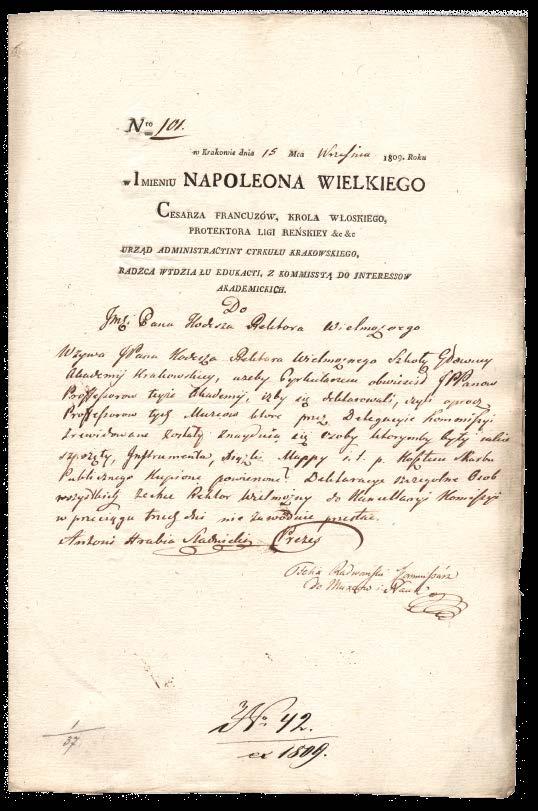 Nro 101.
w Krakowie dnia 15 Mca Września 1809. Roku
w IMIENIU NAPOLEONA WIELKIEGO
CESARZA FRANCUZÓW, KROLA WŁOSKIEGO,
PROTEKTORA LIGI REŃSKIEY &c &c
URZĄD ADMINISTRACYINY CYRKUŁU KRAKOWSKIEGO,
RADZCA WYDZIAŁU EDUKACYI, Z KOMMISSYĄ DO INTERESSOW
AKADEMICKICH.
Do
Jmś Pana Kodesza Rektora Wielmożnego
Wzywa JPana Kodesza Rektora Wielmożnego Szkoły Głowney
Akademij Krakowskiey, ażeby Cyrkularzem obwieścił JPPanow
Proffessorow teyże Akademij, iżby się deklarowali, czyli oprocz
Proffessorow tych Muzeow ktore przez Delegacyie Kommissyi
zrewidowane zostały znayduią się osoby ktorymby były iakie
sprzęty, Instrumenta, Mappy i. t. p. Kosztem Skarbu
Publicznego kupione powierzone? Deklaracye szczegolne Osob
wszystkich zechce Rektor Wielmożny do Kancellaryi Komissyi
w przeciągu trzech dni nie zawodnie przesłać.
Antoni Hrabia Stadnicki Prezes
Felix Radwański Kommissarz
do Muzeow i Nauk
1/37
No 42.
ex 1809.